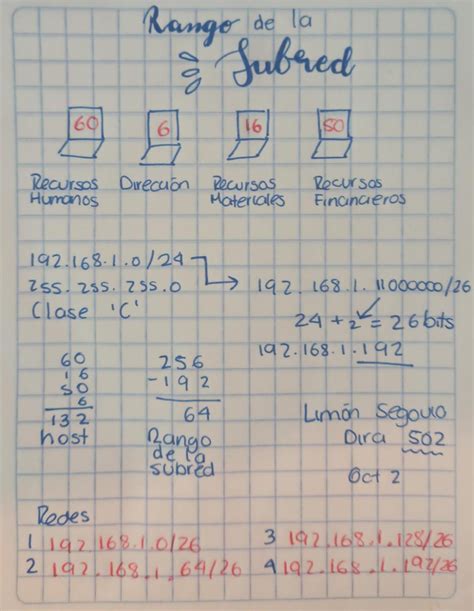 Rango de la
Subred
60 6 16 50
Recursos Humanos
Dirección
Recursos Materiales
Recursos Financieros
192.168.1.0/24
255.255.255.0
Clase 'C'
192.168.1.11000000/26
24 + 2 = 26 bits
192.168.1.192
60
16
50
6
132
host
256
-192
64
Rango
de la
subred
Limón Segovio
Dira 502
Oct 2
Redes
1 192.168.1.0/26
2 192.168.1.64/26
3 192.168.1.128/26
4 192.168.1.192/26